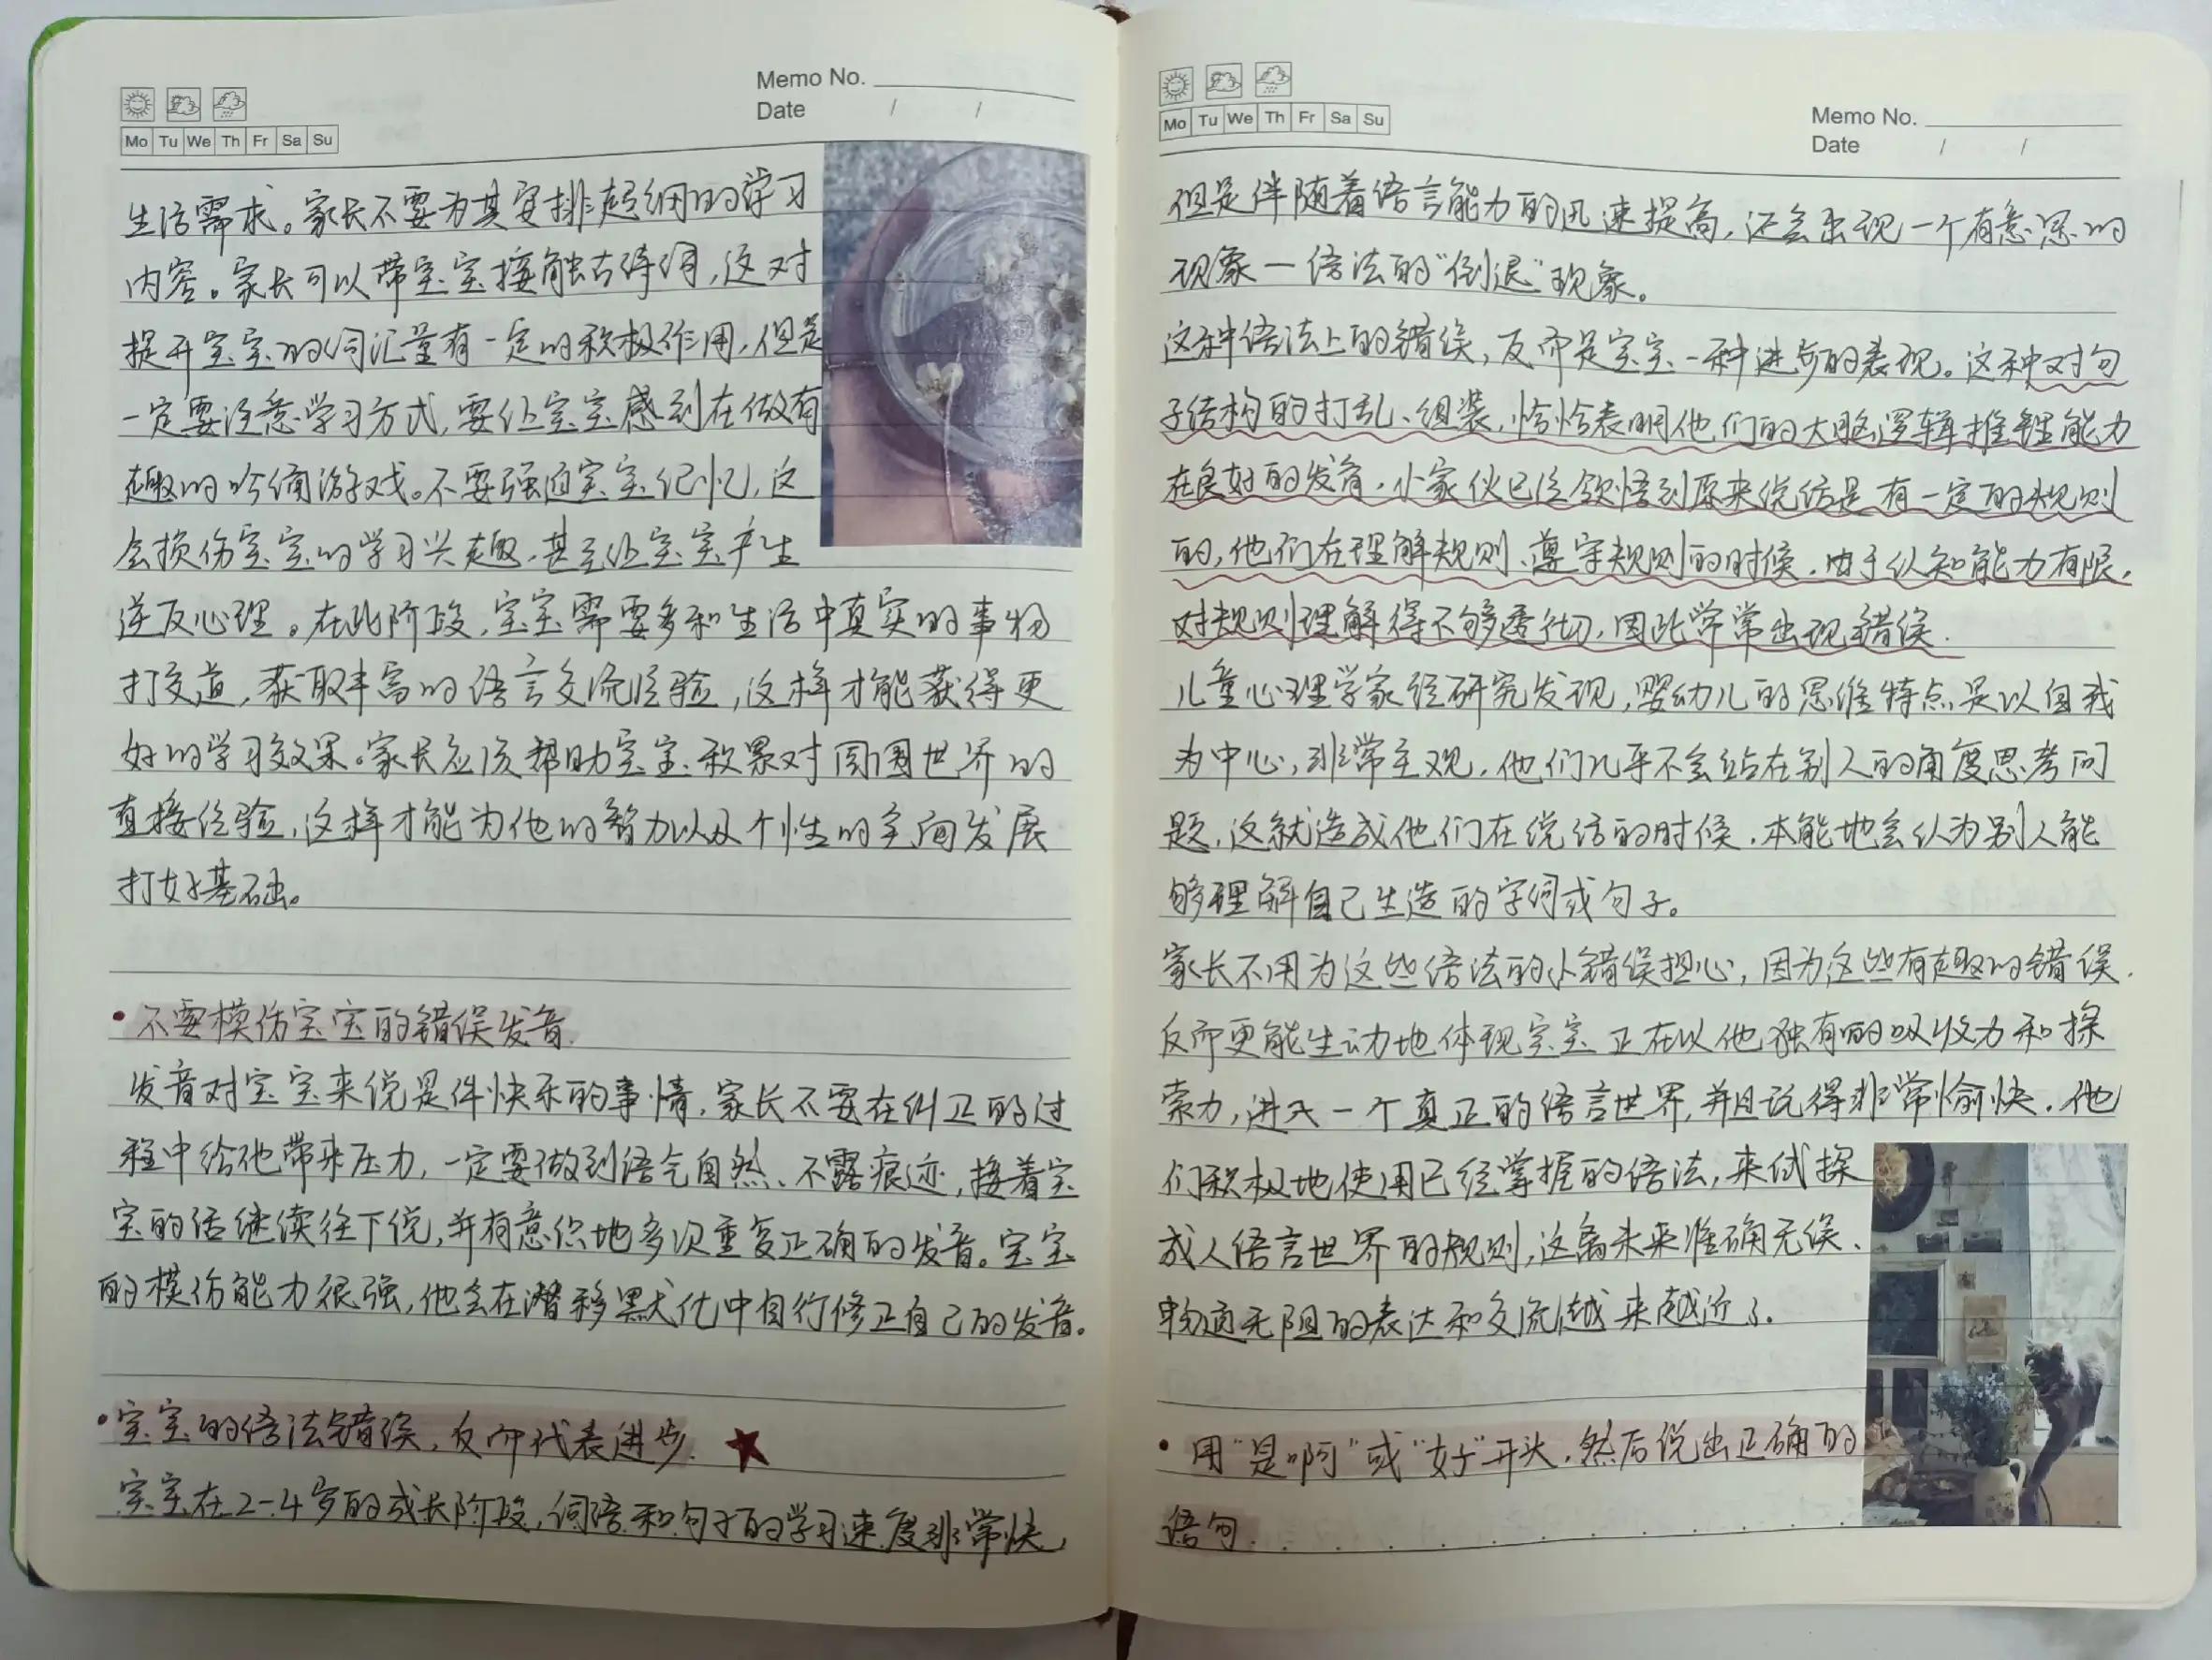 Memo No.
Date / /
Mo Tu We Th Fr Sa Su
生活需求。家长不要为其安排超纲的学习
内容。家长可以带宝宝接触古诗词,这对
提升宝宝的词汇量有一定的积极作用,但是
一定要注意学习方式,要让宝宝感到在做有
趣的吟诵游戏。不要强迫宝宝记忆,这
会损伤宝宝的学习兴趣,甚至让宝宝产生
逆反心理。在此阶段,宝宝需要多和生活中真实的事物
打交道,获取丰富的语言交流经验,这样才能获得更
好的学习效果。家长应该帮助宝宝积累对周围世界的
直接经验,这样才能为他的智力以及个性的全面发展
打好基础。
• 不要模仿宝宝的错误发音.
发音对宝宝来说是件快乐的事情,家长不要在纠正的过
程中给他带来压力,一定要做到语气自然、不露痕迹,接着宝
宝的话继续往下说,并有意识地多次重复正确的发音。宝宝
的模仿能力很强,他会在潜移默化中自行修正自己的发音。
• 宝宝的语法错误,反而代表进步. ★
宝宝在2-4岁的成长阶段,词语和句子的学习速度非常快,
Memo No.
Date / /
Mo Tu We Th Fr Sa Su
但是伴随着语言能力的迅速提高,还会出现一个有意思的
现象—语法的“倒退”现象。
这种语法上的错误,反而是宝宝一种进步的表现。这种对句
子结构的打乱、组装,恰恰表明他们的大脑逻辑推理能力
在良好的发育,小家伙已经领悟到原来说话是有一定的规则
的,他们在理解规则、遵守规则的时候,由于认知能力有限,
对规则理解得不够透彻,因此常常出现错误.
儿童心理学家经研究发现,婴幼儿的思维特点是以自我
为中心,非常主观,他们几乎不会站在别人的角度思考问
题,这就造成他们在说话的时候,本能地会认为别人能
够理解自己生造的字词或句子。
家长不用为这些语法的小错误担心,因为这些有趣的错误.
反而更能生动地体现宝宝正在以他独有的吸收力和探
索力,进入一个真正的语言世界,并且说得非常愉快.他
们积极地使用已经掌握的语法,来试探
成人语言世界的规则,这离未来准确无误、
畅通无阻的表达和交流越来越近了.
• 用“是啊”或“好”开头,然后说出正确的
语句.